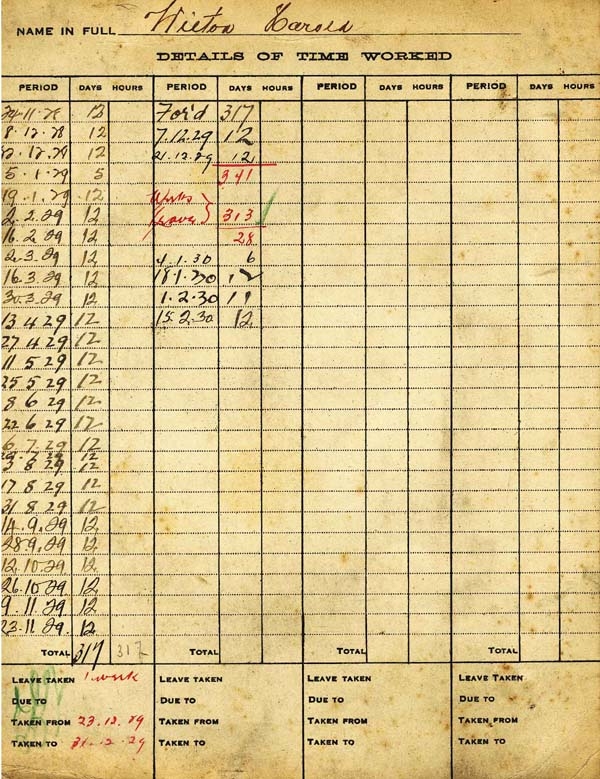 NAME IN FULL Wilton Harold
DETAILS OF TIME WORKED
PERIOD DAYS HOURS PERIOD DAYS HOURS PERIOD DAYS HOURS PERIOD DAYS HOURS
24.11.28 12 For'd 317
8.12.28 12 7.12.29 12
12.28 12 21.12.29 12
5.1.29 5 341
19.1.29 12 Works
2.2.29 12 Leave } 313
16.2.29 12 28
2.3.29 12 4.1.30 6
16.3.29 12 18.1.30 12
30.3.29 12 1.2.30 11
13 4 29 12 15.2.30 12
27 4 29 12
11 5 29 12
25 5 29 12
8 6 29 12
22 6 29 12
6.7.29 12
29 12
3 8 29 12
17 8 29 12
31 8 29 12
14.9.29 12
28.9.29 12
12.10.29 12
26.10.29 12
9.11.29 12
23.11.29. 12
TOTAL 317 317 TOTAL TOTAL TOTAL
LEAVE TAKEN 1 week LEAVE TAKEN LEAVE TAKEN LEAVE TAKEN
DUE TO DUE TO DUE TO DUE TO
TAKEN FROM 23.12.29 TAKEN FROM TAKEN FROM TAKEN FROM
TAKEN TO 31.12.29 TAKEN TO TAKEN TO TAKEN TO